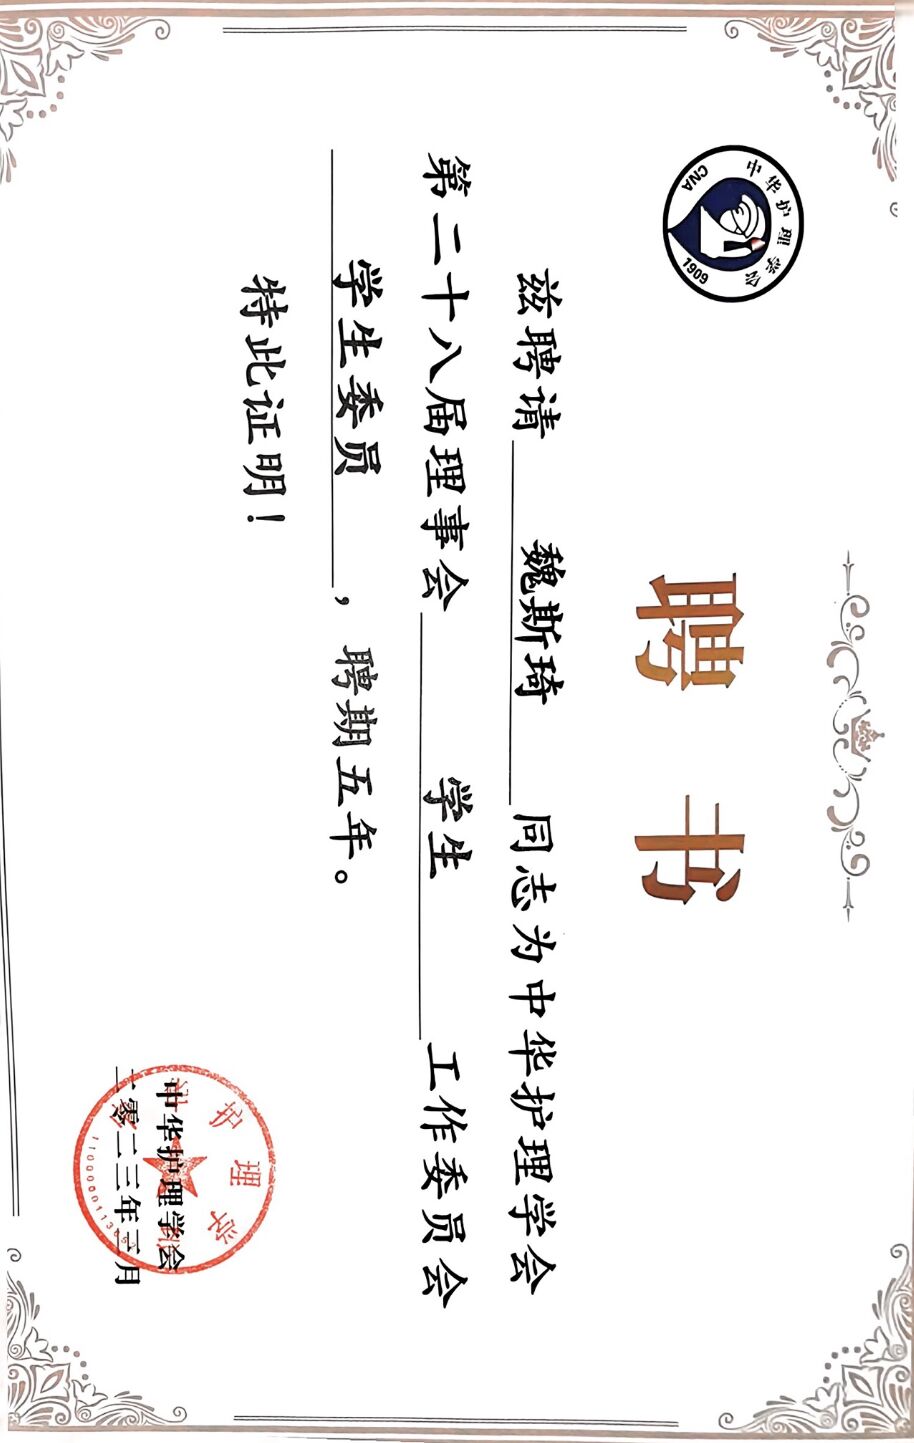 中华护理学会
CNA
1909
聘书
兹聘请 魏斯琦 同志为中华护理学会
第二十八届理事会 学生 工作委员会
学生委员，聘期五年。
特此证明！
中华护理学会
二零二三年三月
护理学